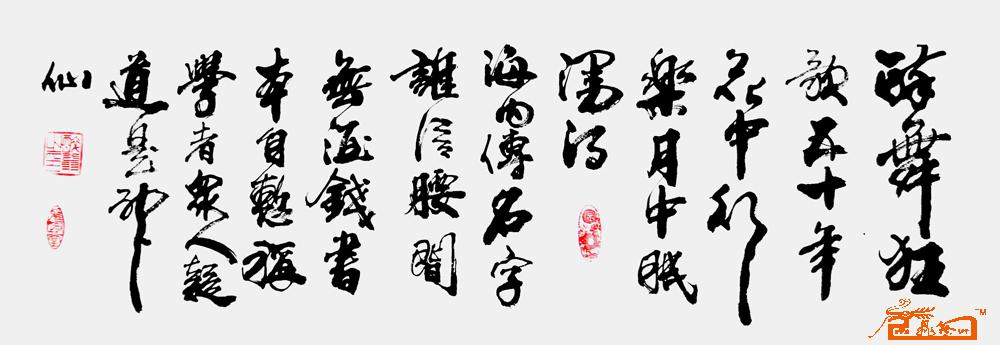 醉舞狂
歌五十年
花中行
樂月中眠
漫得
海内傳名字
誰信腰間
無酒錢書
本自慙稱
學者眾人疑
道是神
仙